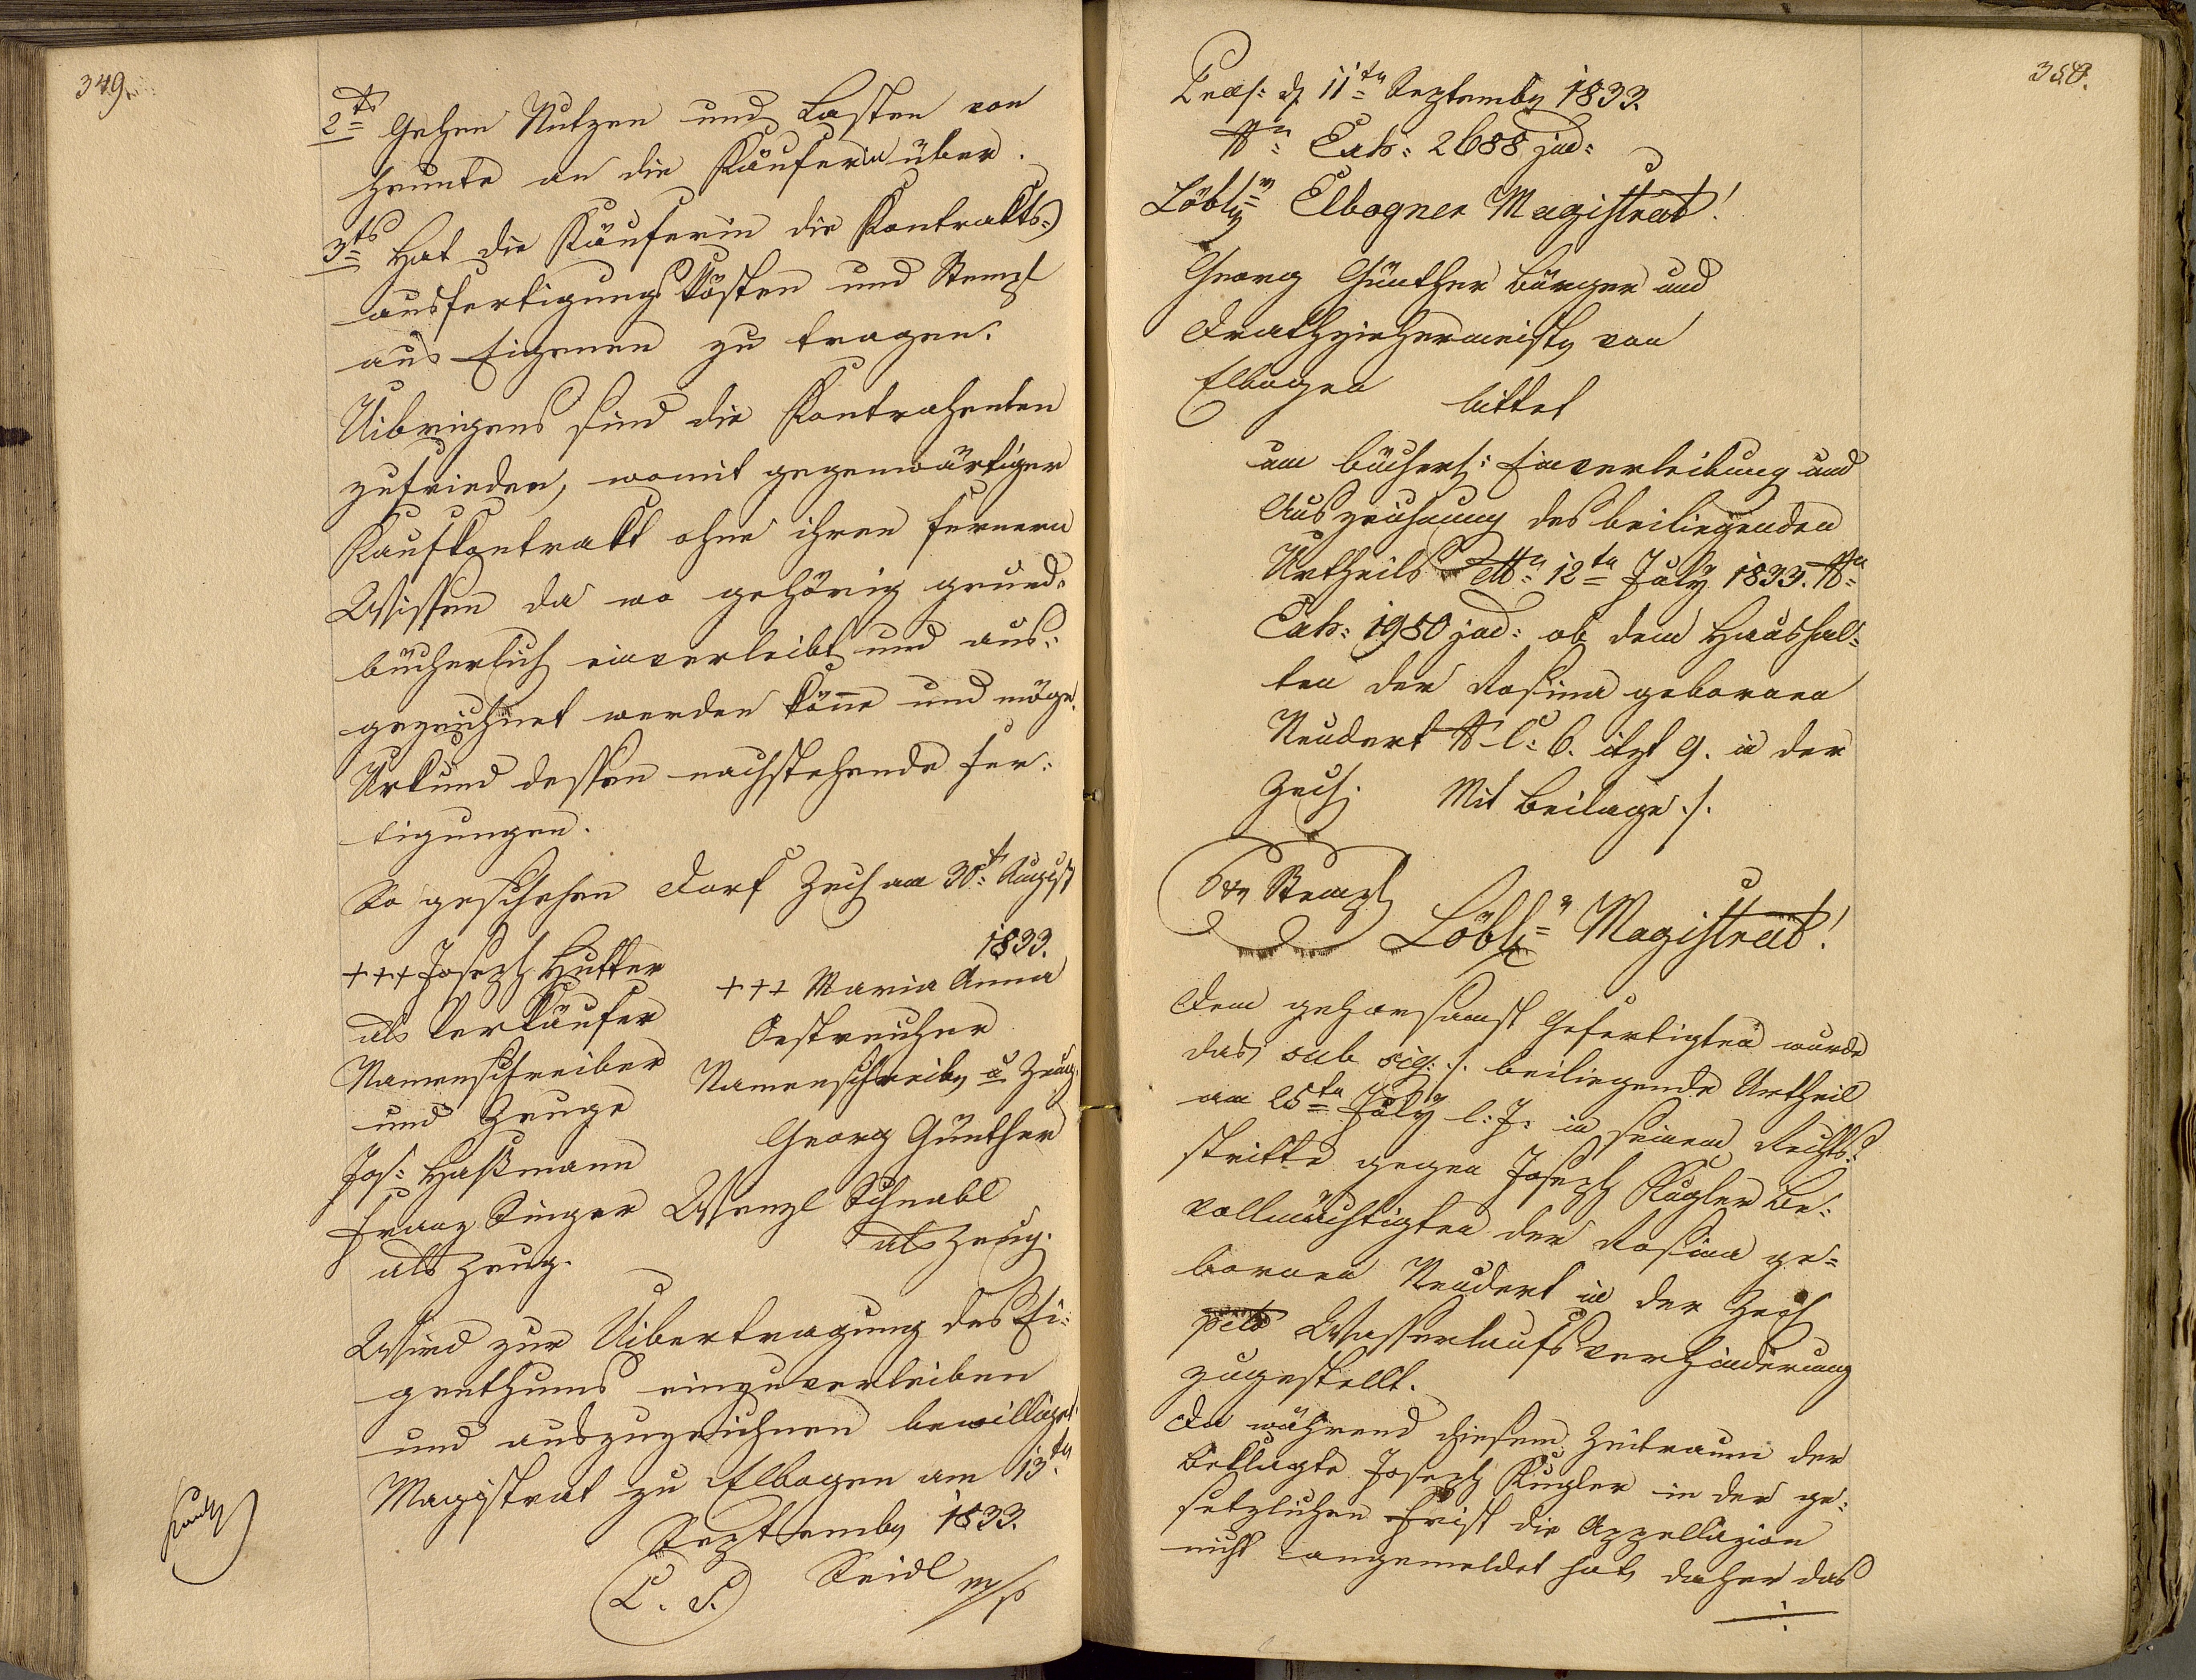 349.
2ts Gehen Nutzen und Lasten von
heunte an die Käuferin über.
3ts Hat die Käuferin die Kontrakts-
ausfertigungskösten und Stempl
aus Eigenen zu tragen.
Uibrigens sind die Kontrahenten
zufrieden, womit gegenwärtiger
Kaufkontrakt ohne ihren fernern
Wissen da wo gehörig grund-
bücherlich einverleibt und aus-
gezeichnet werden könne und möge.
Urkund dessen nachstehende Fer-
tigungen.
So geschehen Dorf Zech am 30t August
1833.
+++ Joseph Hutter
als Verkäufer
Namenschreiber
und Zeuge
Jos: Haßmann
Franz Singer
als Zeug.
+++ Maria Anna
Oestreicher
Namenschreiber u Zeug.
Georg Günther
Wenzl Schnabl
als Zeug.
Wird zur Uibertragung des Ei-
genthums einzuverleiben
und auszuzeichnen bewilliget.
Magistrat zu Elbogen am 13ten
September 1833.
L. S. Seidl m/p
350.
Praes: d 11ten September 1833.
Nr: Exh: 2688 jud:
Löblr Elbogner Magistrat!
Georg Günther Bürger und
Drathziehermeister von
Elbogen bittet
um bücherl: Einverleibung und
Auszeichnung des beiliegenden
Urtheils ddto 12ten July 1833. Nr:
Exh: 1950 jud: ob dem Haushal-
ten der Rosina gebornen
Neudert N C: 6. itzt 9. in der
Zech. Mit Beilage ./.
6 xr Stempl
Löblr Magistrat!
Dem gehorsamst Gefertigten wurde
das sub sig: ./. beiliegende Urtheil
am 25ten July l: J: in seinem Rechts-
stritte gegen Joseph Kugler Be-
vollmächtigten der Rosina ge-
bornen Neudert in der Zech
pcto Wasserlaufsverhinderung
zugestellt.
Da während diesem Zeitraum der
Beklagte Joseph Kugler in der ge-
setzlichen Frist die Appellazion
nicht angemeldet hat, daher das